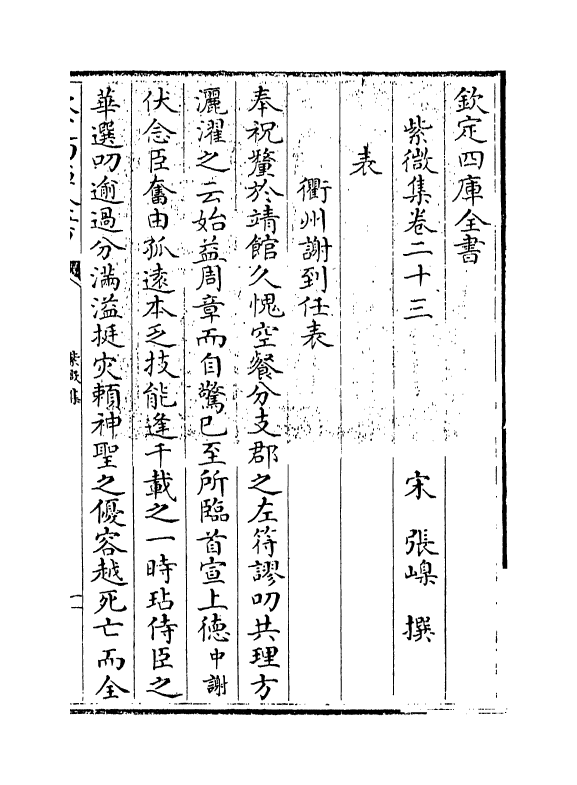 欽定四庫全書
紫微集卷二十三
宋 張嵲 撰
表
衢州謝到任表
奉祝釐於靖館久愧空餐分支郡之左符謬叨共理方
灑濯之云始益周章而自驚已至所臨首宣上德中謝
伏念臣奮由孤遠本乏技能逢千載之一時玷侍臣之
華選叨逾過分滿溢挻灾賴神聖之優容越死亡而全
紫微集